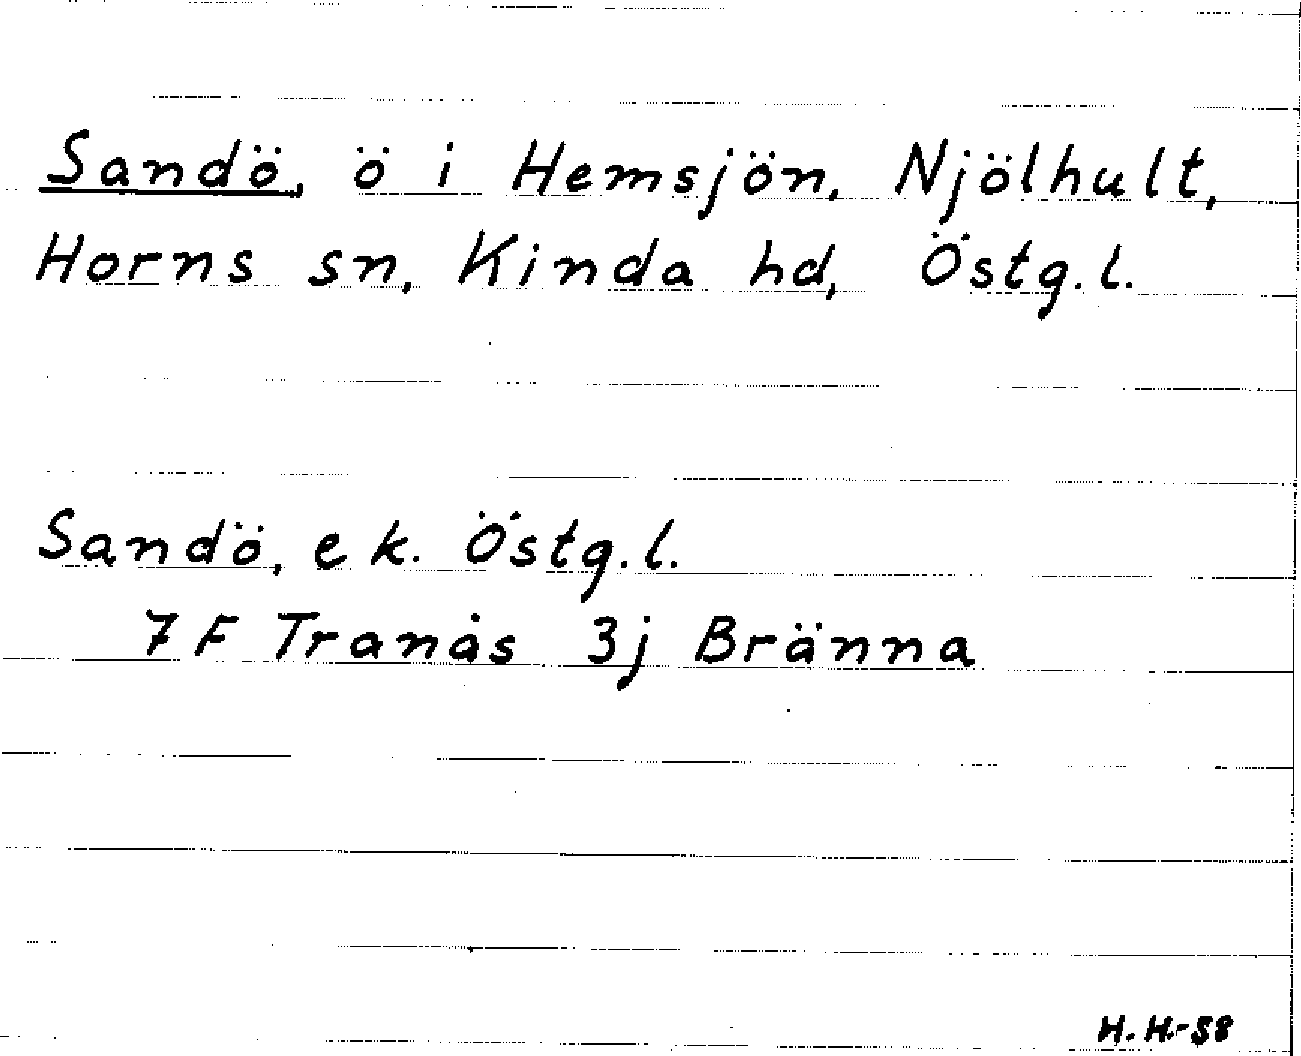 Sandö, ö i Hemsjön, Njölhult,
Horns sn, Kinda hd, Östg.l.
Sandö, ek. Östg.l.
7 F Tranås 3j Bränna
H. H.-58